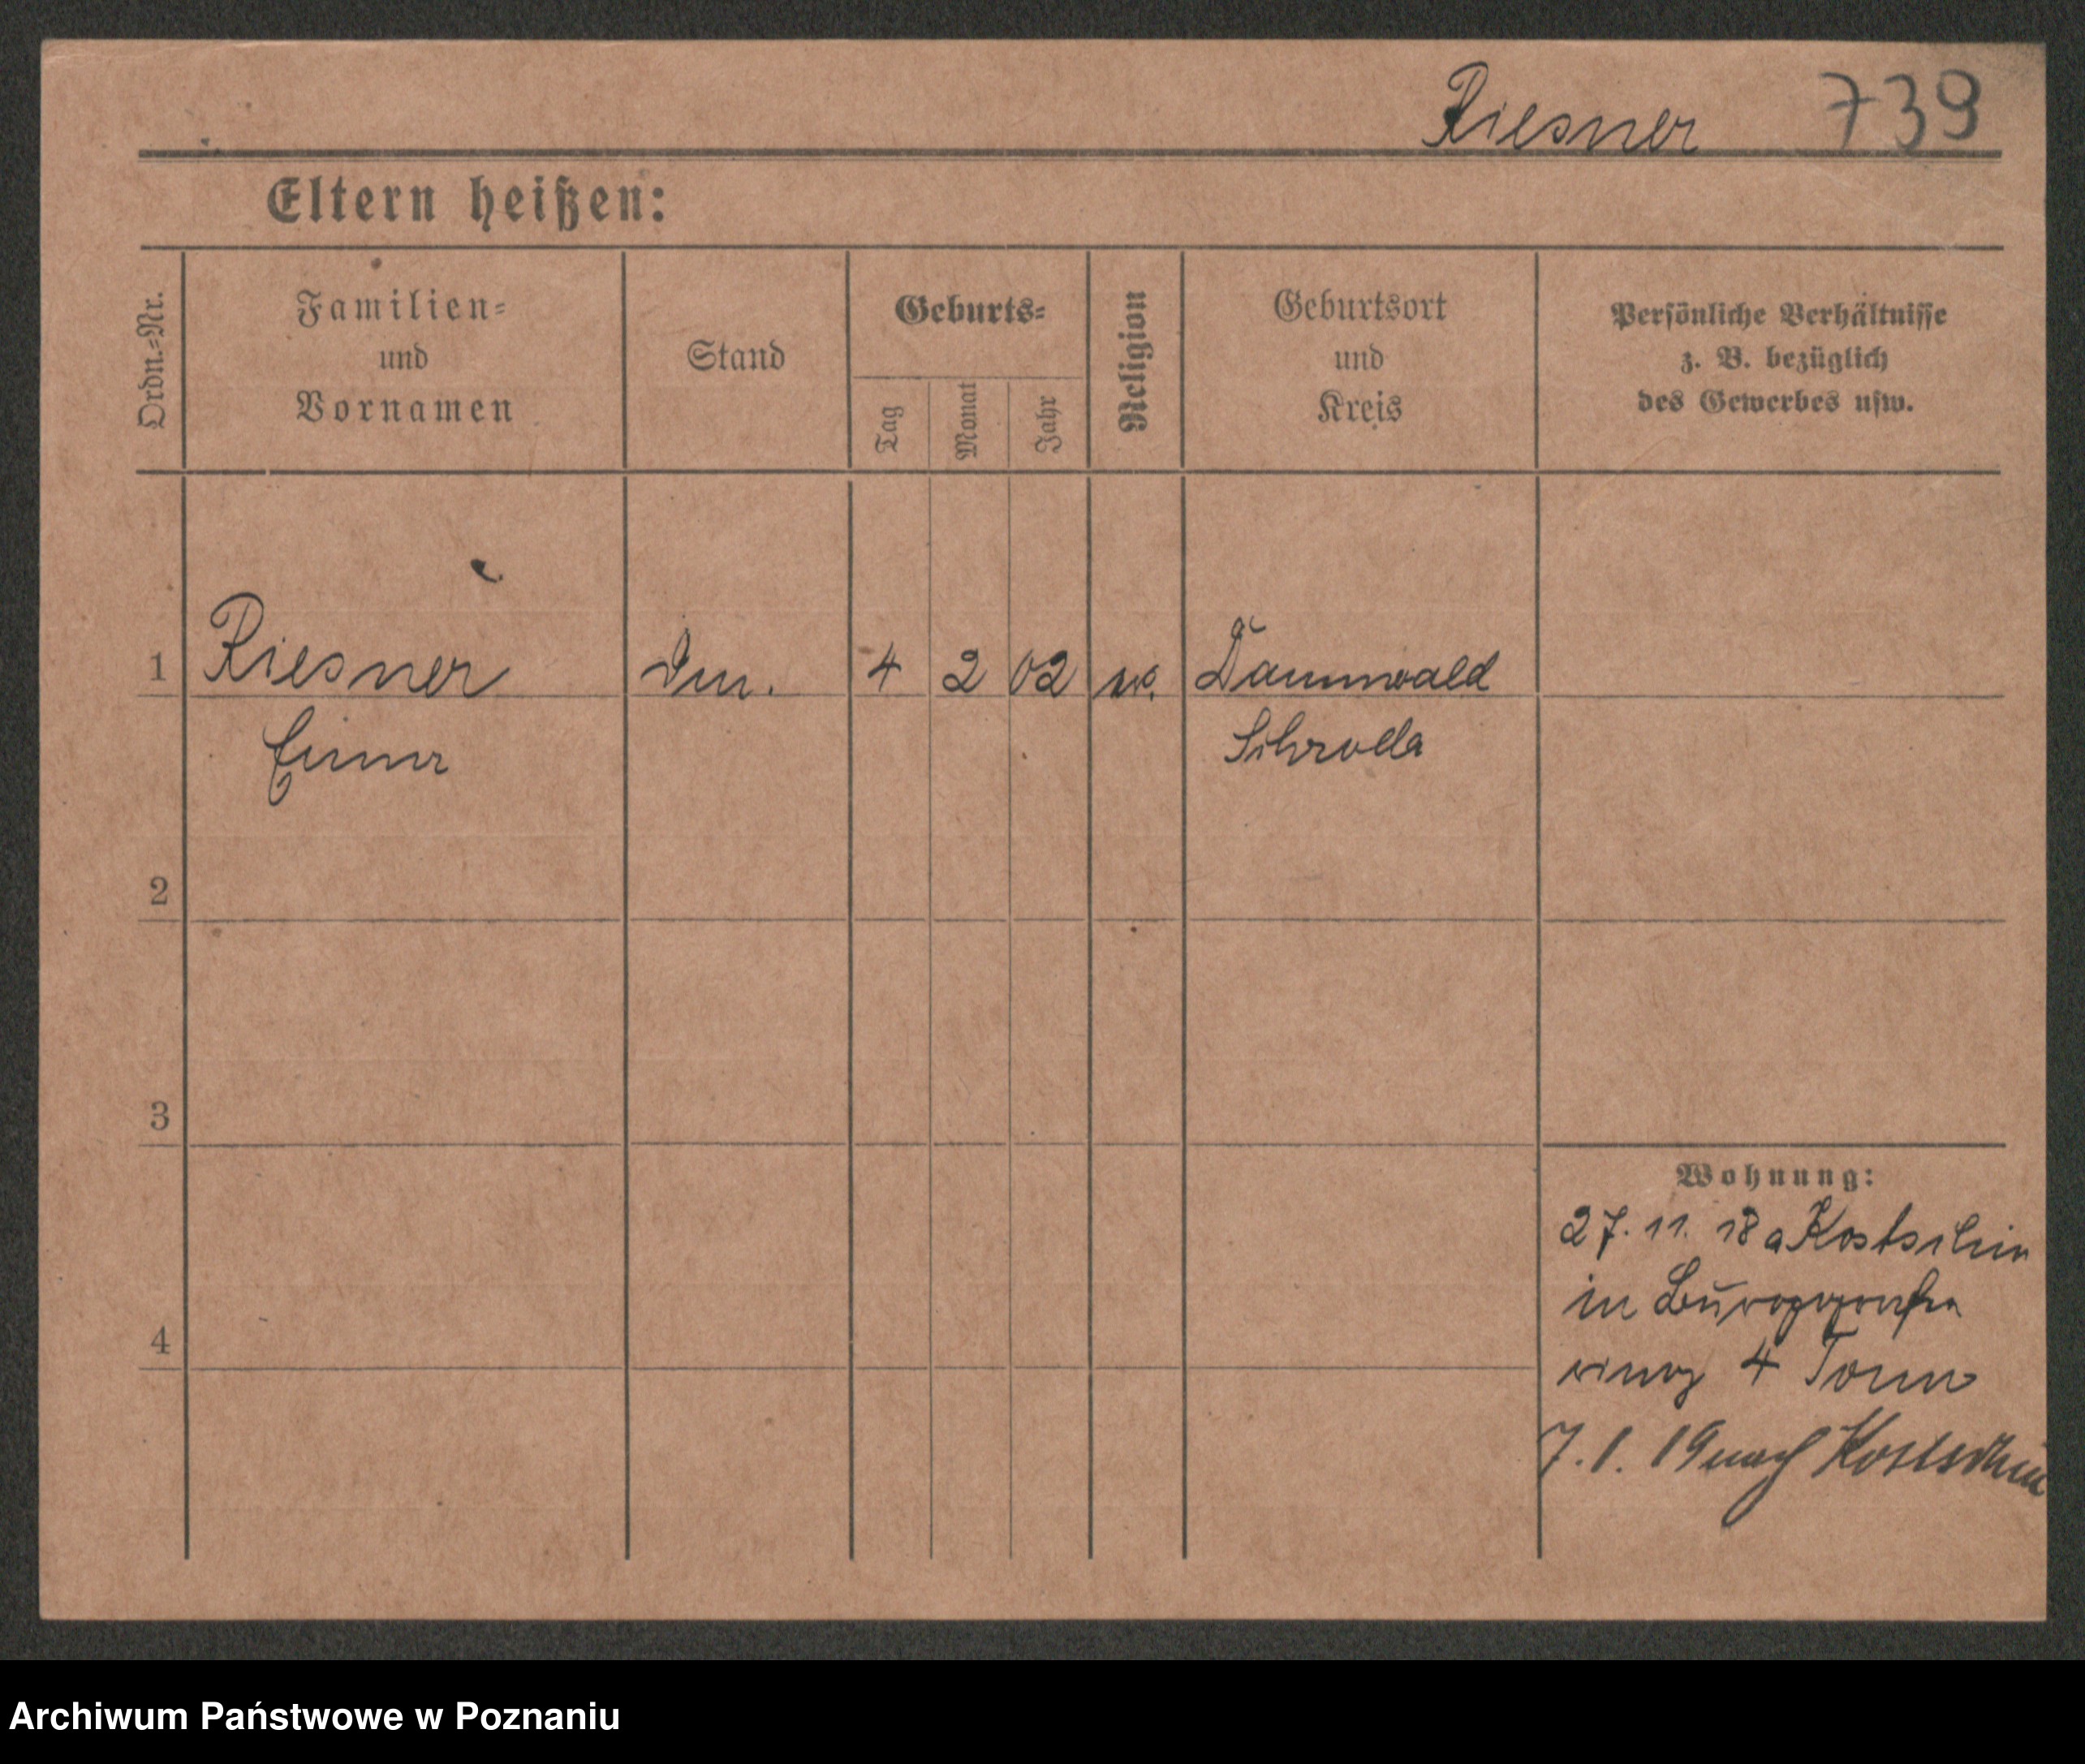 Riesner 739
Eltern heißen:
Ordn.-Nr.
Familien-
und
Vornamen
Stand
Geburts-
Tag
Monat
Jahr
Religion
Geburtsort
und
Kreis
Persönliche Verhältnisse
z. B. bezüglich
des Gewerbes usw.
1 Riesner 4 2 02 Dannwald
Schroda
2
3
4
Wohnung:
27. 11. 18 a Kostschin
in
4
7. 1. 19 nach Kostschin
Archiwum Państwowe w Poznaniu